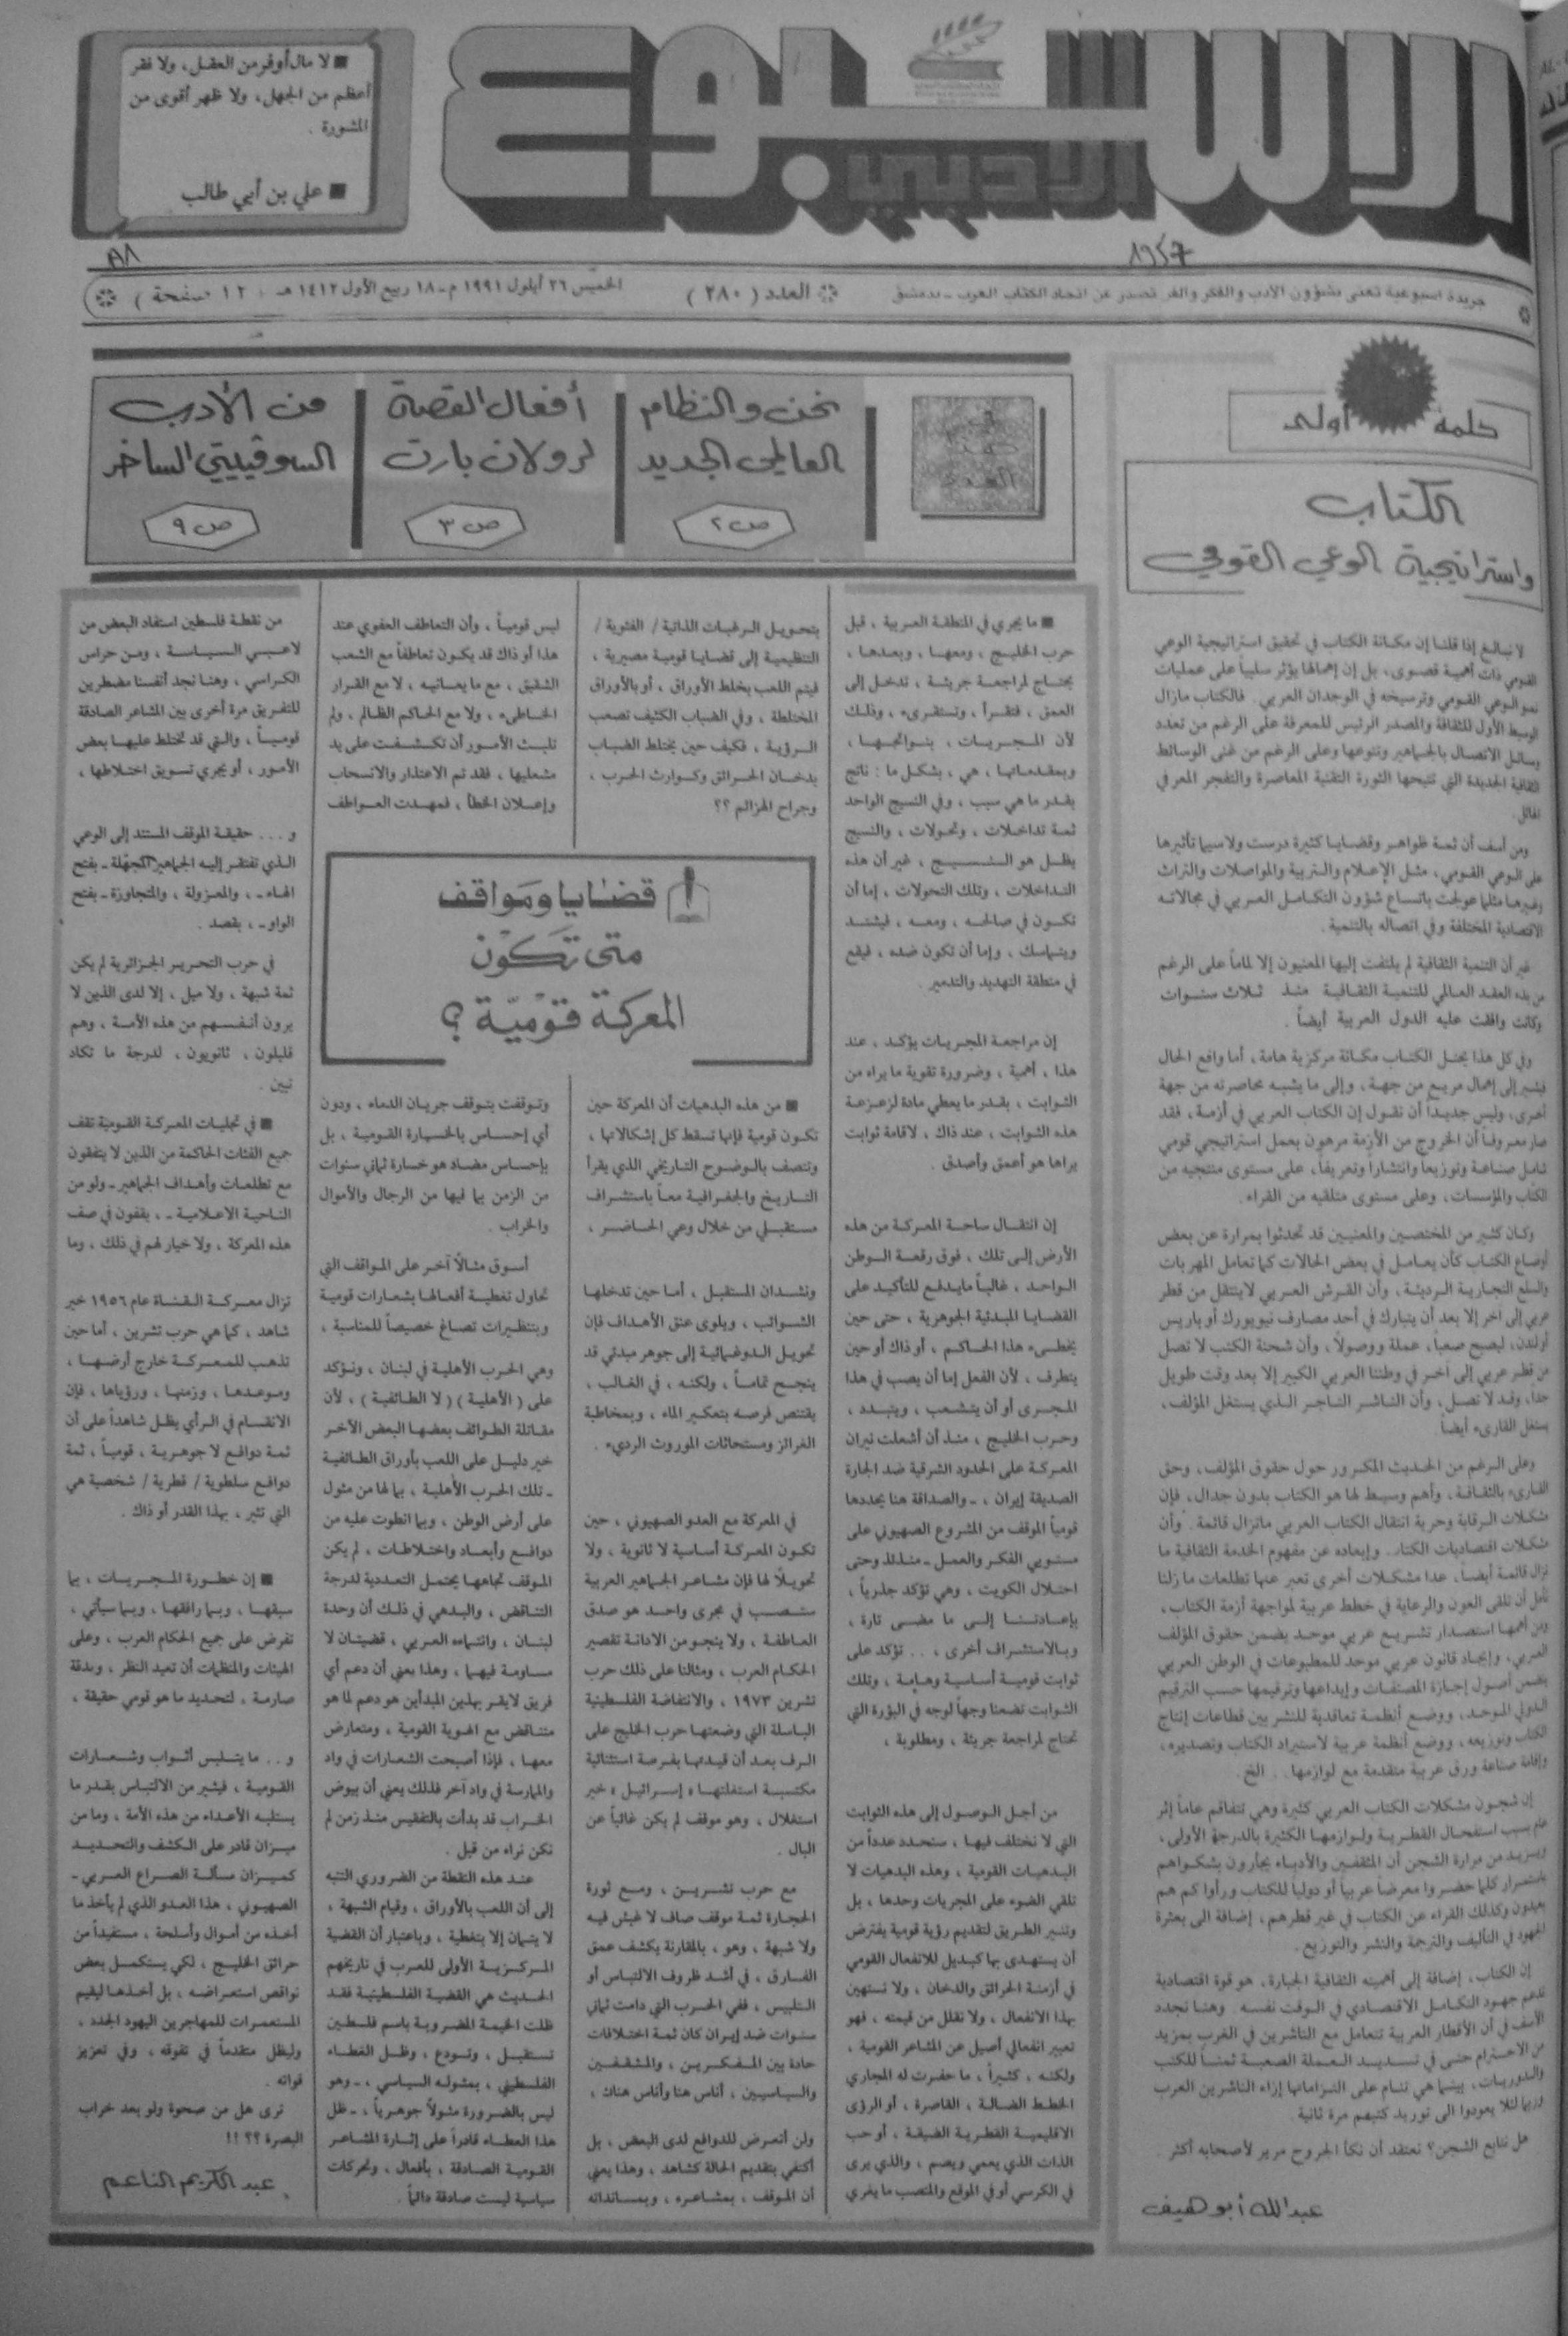 الأسبوع
الأدبي
■ لا مال أوفر من العقل ، ولا فقر
أعظم من الجهل ، ولا ظهر أقوى من
المشورة .
■ علي بن أبي طالب
٨١
جريدة اسبوعية تعنى بشؤون الأدب والفكر والفن تصدر عن اتحاد الكتاب العرب - بدمشق
العدد ( ٢٨٠ )
الخميس ٢٦ أيلول ١٩٩١ م - ١٨ ربيع الأول ١٤١٢ هـ
١٢ صفحة
كلمة أولى
الكتاب
واستراتيجية الوعي القومي
لا نبالغ إذا قلنا إن مكانة الكتاب في تحقيق استراتيجية الوعي
القومي ذات أهمية قصوى، بل إن إهمالها يؤثر سلبياً على عمليات
نمو الوعي القومي وترسيخه في الوجدان العربي . فالكتاب مازال
الوسيط الأول للثقافة والمصدر الرئيس للمعرفة على الرغم من تعدد
وسائل الاتصال بالجماهير وتنوعها وعلى الرغم من غنى الوسائط
الثقافية الجديدة التي تتيحها الثورة التقنية المعاصرة والتفجر المعرفي
الهائل.
ومن أسف أن ثمة ظواهر وقضايا كثيرة درست ولاسيما تأثيرها
على الوعي القومي، مثل الإعلام والتربية والمواصلات والتراث
وغيرها مثلما عولجت باتساع شؤون التكامل العربي في مجالاته
الاقتصادية المختلفة وفي اتصاله بالتنمية.
غير أن التنمية الثقافية لم يلتفت إليها المعنيون إلا لماماً على الرغم
من بدء العقد العالمي للتنمية الثقافية منذ ثلاث سنوات
وكانت وافقت عليه الدول العربية أيضاً .
وفي كل هذا يحتل الكتاب مكانة مركزية هامة، أما واقع الحال
فيشير إلى إهمال مريع من جهة، وإلى ما يشبه محاصرته من جهة
أخرى، وليس جديداً أن نقول إن الكتاب العربي في أزمة، فقد
صار معروفاً أن الخروج من الأزمة مرهون بعمل استراتيجي قومي
شامل صناعة وتوزيعاً وانتشاراً وتعريفاً، على مستوى منتجيه من
الكتّاب والمؤسسات، وعلى مستوى متلقيه من القراء.
وكان كثير من المختصين والمعنيين قد تحدثوا بمرارة عن بعض
أوضاع الكتاب كأن يعامل في بعض الحالات كما تعامل المهربات
والسلع التجارية الرديئة، وأن القرش العربي لاينتقل من قطر
عربي إلى آخر إلا بعد أن يتبارك في أحد مصارف نيويورك أو باريس
أو لندن، ليصبح صعباً، عملة ووصولاً، وأن شحنة الكتب لا تصل
من قطر عربي إلى آخر في وطننا العربي الكبير إلا بعد وقت طويل
جداً، وقد لا تصل، وأن الناشر التاجر الذي يستغل المؤلف،
يستغل القارىء أيضاً.
وعلى الرغم من الحديث المكرور حول حقوق المؤلف، وحق
القارىء بالثقافة، وأهم وسيط لها هو الكتاب بدون جدال، فإن
مشكلات الرقابة وحرية انتقال الكتاب العربي ماتزال قائمة. وأن
مشكلات اقتصاديات الكتاب.. وإبعاده عن مفهوم الخدمة الثقافية ما
تزال قائمة أيضاً، عدا مشكلات أخرى تعبر عنها تطلعات ما زلنا
نأمل أن تلقى العون والرعاية في خطط عربية لمواجهة أزمة الكتاب،
ومن أهمها استصدار تشريع عربي موحد يضمن حقوق المؤلف
العربي، وإيجاد قانون عربي موحد للمطبوعات في الوطن العربي
يضمن أصول إجازة المصنفات وإيداعها وترقيمها حسب الترقيم
الدولي الموحد، ووضع أنظمة تعاقدية للنشر بين قطاعات إنتاج
الكتاب وتوزيعه، ووضع أنظمة عربية لاستيراد الكتاب وتصديره،
وإقامة صناعة ورق عربية متقدمة مع لوازمها.. الخ.
إن شجون مشكلات الكتاب العربي كثيرة وهي تتفاقم عاماً إثر
عام بسبب استفحال القطرية ولوازمها الكثيرة بالدرجة الأولى،
ويزيد من مرارة الشجن أن المثقفين والأدباء يجأرون بشكواهم
باستمرار كلما حضروا معرضاً عربياً أو دولياً للكتاب ورأوا كم هم
بعيدون وكذلك القراء عن الكتاب في غير قطرهم، إضافة الى بعثرة
الجهود في التأليف والترجمة والنشر والتوزيع.
إن الكتاب، إضافة إلى أهميته الثقافية الجبارة، هو قوة اقتصادية
تدعم جهود التكامل الاقتصادي في الوقت نفسه. وهنا نجدد
الأسف في أن الأقطار العربية تتعامل مع الناشرين في الغرب بمزيد
من الاحترام حتى في تسديد العملة الصعبة ثمناً للكتب
والدوريات، بينما هي تنام على التزاماتها إزاء الناشرين العرب
وربما لئلا يعودوا الى توريد كتبهم مرة ثانية.
هل نتابع الشجن؟ نعتقد أن نكأ الجروح مرير لأصحابه أكثر.
عبدالله أبوهيف
في هذا العدد
نحن والنظام
العالمي الجديد
ص ٢
أفعال القصة
لرولان بارت
ص ٣
من الأدب
السوفييتي الساخر
ص ٩
■ ما يجري في المنطقة العربية ، قبل
حرب الخليج ، ومعها ، وبعدها ،
يحتاج لمراجعة جريئة ، تدخل إلى
العمق ، فتقرأ ، وتستقرىء ، وذلك
لأن المجريات ، بنواتجها ،
وبمقدماتها ، هي ، بشكل ما : ناتج
بقدر ما هي سبب ، وفي النسيج الواحد
ثمة تداخلات ، وتحولات ، والنسيج
يظل هو النسيج ، غير أن هذه
التداخلات ، وتلك التحولات ، إما أن
تكون في صالحه ، ومعه ، فيشتد
ويتماسك ، وإما أن تكون ضده ، فيقع
في منطقة التهديد والتدمير .
إن مراجعة المجريات يؤكد ، عند
هذا ، أهمية ، وضرورة تقوية ما يراه من
الثوابت ، بقدر ما يعطي مادة لزعزعة
هذه الثوابت ، عند ذاك ، لاقامة ثوابت
يراها هو أعمق وأصدق .
إن انتقال ساحة المعركة من هذه
الأرض إلى تلك ، فوق رقعة الوطن
الواحد ، غالباً مايدفع للتأكيد على
القضايا المبدئية الجوهرية ، حتى حين
يخطىء هذا الحاكم ، أو ذاك أو حين
يتطرف ، لأن الفعل إما أن يصب في هذا
المجرى أو أن يتشعب ، ويتبدد ،
وحرب الخليج ، منذ أن أشعلت نيران
المعركة على الحدود الشرقية ضد الجارة
الصديقة إيران ، - والصداقة هنا يحددها
قومياً الموقف من المشروع الصهيوني على
مستويي الفكر والعمل - منذئذ وحتى
احتلال الكويت ، وهي تؤكد جذرياً ،
بإعادتنا إلى ما مضى تارة ،
وبالاستشراف أخرى ، .. تؤكد على
ثوابت قومية أساسية وهامة ، وتلك
الثوابت تضعنا وجهاً لوجه في البؤرة التي
تحتاج لمراجعة جريئة ، ومطلوبة ،
من أجل الوصول إلى هذه الثوابت
التي لا نختلف فيها ، سنحدد عدداً من
البدهيات القومية ، وهذه البدهيات لا
تلقي الضوء على المجريات وحدها ، بل
وتنير الطريق لتقديم رؤية قومية يفترض
أن يستهدى بها كبديل للانفعال القومي
في أزمنة الحرائق والدخان ، ولا تستهين
بهذا الانفعال ، ولا نقلل من قيمته ، فهو
تعبير انفعالي أصيل عن المشاعر القومية ،
ولكنه ، كثيراً ، ما حفرت له المجاري
الخطط الضالة ، القاصرة ، أو الرؤى
الاقليمية القطرية الضيقة ، أو حب
الذات الذي يعمي ويصم ، والذي يرى
في الكرسي أو في الموقع والمنصب ما يغري
بتحويل الرغبات الذاتية / الفئوية /
التنظيمية إلى قضايا قومية مصيرية ،
فيتم اللعب بخلط الأوراق ، أو بالأوراق
المختلطة ، وفي الضباب الكثيف تصعب
الرؤية ، فكيف حين يختلط الضباب
بدخان الحرائق وكوارث الحرب ،
وجراح الهزائم ؟؟
قضايا ومواقف
متى تكون
المعركة قومية ؟
■ من هذه البدهيات أن المعركة حين
تكون قومية فإنها تسقط كل إشكالاتها ،
وتتصف بالوضوح التاريخي الذي يقرأ
التاريخ والجغرافية معاً باستشراف
مستقبلي من خلال وعي الحاضر ،
ونشدان المستقبل ، أما حين تدخلها
الشوائب ، ويلوى عنق الأهداف فإن
تحويل الدوغمائية إلى جوهر مبدئي قد
ينجح تماماً ، ولكنه ، في الغالب ،
يقتنص فرصه بتعكير الماء ، وبمخاطبة
الغرائز ومستحاثات الموروث الرديء .
في المعركة مع العدو الصهيوني ، حين
تكون المعركة أساسية لا ثانوية ، ولا
تحويلاً لها فإن مشاعر الجماهير العربية
ستصب في مجرى واحد هو صدق
العاطفة ، ولا ينجو من الادانة تقصير
الحكام العرب ، ومثالنا على ذلك حرب
تشرين ١٩٧٣ ، والانتفاضة الفلسطينية
الباسلة التي وضعتها حرب الخليج على
الرف بعد أن قيدتها بفرصة استثنائية
مكتسبة استغلتها « إسرائيل » خير
استغلال ، وهو موقف لم يكن غائباً عن
البال .
مع حرب تشرين ، ومع ثورة
الحجارة ثمة موقف صاف لا غبش فيه
ولا شبهة ، وهو ، بالمقارنة يكشف عمق
الفارق ، في أشد ظروف الالتباس أو
التلبيس ، ففي الحرب التي دامت ثماني
سنوات ضد إيران كان ثمة اختلافات
حادة بين المفكرين ، والمثقفين
والسياسيين ، أناس هنا وأناس هناك ،
ولن أتعرض للدوافع لدى البعض ، بل
أكتفي بتقديم الحالة كشاهد ، وهذا يعني
أن الموقف ، بمشاعره ، وبمسانداته
ليس قومياً ، وأن التعاطف العفوي عند
هذا أو ذاك قد يكون تعاطفاً مع الشعب
الشقيق ، مع ما يعانيه ، لا مع القرار
الخاطىء ، ولا مع الحاكم الظالم ، ولم
تلبث الأمور أن تكشفت على يد
مشعليها ، فقد تم الاعتذار والانسحاب
وإعلان الخطأ ، فمهدت العواطف
وتوقفت بتوقف جريان الدماء ، ودون
أي إحساس بالخسارة القومية ، بل
بإحساس مضاد هو خسارة ثماني سنوات
من الزمن بما فيها من الرجال والأموال
والخراب .
أسوق مثالاً آخر على المواقف التي
تحاول تغطية أفعالها بشعارات قومية
وبتنظيرات تصاغ خصيصاً للمناسبة ،
وهي الحرب الأهلية في لبنان ، ونؤكد
على ( الأهلية ) ( لا الطائفية ) ، لأن
مقاتلة الطوائف بعضها البعض الآخر
خير دليل على اللعب بأوراق الطائفية
- تلك الحرب الأهلية ، بما لها من مثول
على أرض الوطن ، وبما انطوت عليه من
دوافع وأبعاد واختلاطات ، لم يكن
الموقف تجاهها يحتمل التعددية لدرجة
التناقض ، والبدهي في ذلك أن وحدة
لبنان ، وانتماءه العربي ، قضيتان لا
مساومة فيهما ، وهذا يعني أن دعم أي
فريق لايقر بهذين المبدأين هو دعم لما هو
متناقض مع الهوية القومية ، ومتعارض
معها ، فإذا أصبحت الشعارات في واد
والممارسة في واد آخر فذلك يعني أن بيوض
الخراب قد بدأت بالتفقيس منذ زمن لم
نكن نراه من قبل .
عند هذه النقطة من الضروري التنبه
إلى أن اللعب بالأوراق ، وقيام الشبهة ،
لا يتمان إلا بتغطية ، وباعتبار أن القضية
المركزية الأولى للعرب في تاريخهم
الحديث هي القضية الفلسطينية فقد
ظلت الخيمة المضروبة باسم فلسطين
تستقبل ، وتودع ، وظل الغطاء
الفلسطيني ، بمثوله السياسي ، - وهو
ليس بالضرورة مثولاً جوهرياً ، - ظل
هذا الغطاء قادراً على إثارة المشاعر
القومية الصادقة ، بأفعال ، وتحركات
سياسية ليست صادقة دائماً .
من نقطة فلسطين استفاد البعض من
لاعبي السياسة ، ومن حراس
الكراسي ، وهنا نجد أنفسنا مضطرين
للتفريق مرة أخرى بين المشاعر الصادقة
قومياً ، والتي قد تختلط عليها بعض
الأمور ، أو يجري تسويق اختلاطها ،
و ... حقيقة الموقف المستند إلى الوعي
الذي تفتقر إليه الجماهير المجهّلة - بفتح
الهاء - ، والمعزولة ، والمتجاوزة - بفتح
الواو - ، بقصد .
في حرب التحرير الجزائرية لم يكن
ثمة شبهة ، ولا ميل ، إلا لدى الذين لا
يرون أنفسهم من هذه الأمة ، وهم
قليلون ، ثانويون ، لدرجة ما تكاد
تبين .
■ في تجليات المعركة القومية تقف
جميع الفئات الحاكمة من الذين لا يتفقون
مع تطلعات وأهداف الجماهير - ولو من
الناحية الاعلامية - ، يقفون في صف
هذه المعركة ، ولا خيار لهم في ذلك ، وما
تزال معركة القناة عام ١٩٥٦ خير
شاهد ، كما هي حرب تشرين ، أما حين
تذهب للمعركة خارج أرضها ،
وموعدها ، وزمنها ، ورؤياها ، فإن
الانقسام في الرأي يظل شاهداً على أن
ثمة دوافع لا جوهرية ، قومياً ، ثمة
دوافع سلطوية / قطرية / شخصية هي
التي تثير ، بهذا القدر أو ذاك .
■ إن خطورة المجريات ، بما
سبقها ، وبما رافقها ، وبما سيأتي ،
تفرض على جميع الحكام العرب ، وعلى
الهيئات والمنظمات أن تعيد النظر ، وبدقة
صارمة ، لتحديد ما هو قومي حقيقة ،
و .. ما يتلبس أثواب وشعارات
القومية ، فيثير من الالتباس بقدر ما
يستلبه الأعداء من هذه الأمة ، وما من
ميزان قادر على الكشف والتحديد
كميزان مسألة الصراع العربي -
الصهيوني ، هذا العدو الذي لم يأخذ ما
أخذه من أموال وأسلحة ، مستفيداً من
حرائق الخليج ، لكي يستكمل بعض
نواقص استعراضه ، بل أخذها ليقيم
المستعمرات للمهاجرين اليهود الجدد ،
وليظل متقدماً في تفوقه ، وفي تعزيز
قواته .
ترى هل من صحوة ولو بعد خراب
البصرة ؟؟ !!
عبد الكريم الناعم